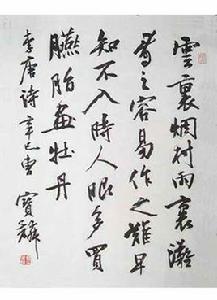 雲裏烟村雨裏灘
看之容易作之難早
知不入時人眼多買
臙脂畫牡丹
李唐詩辛巳書寶麟